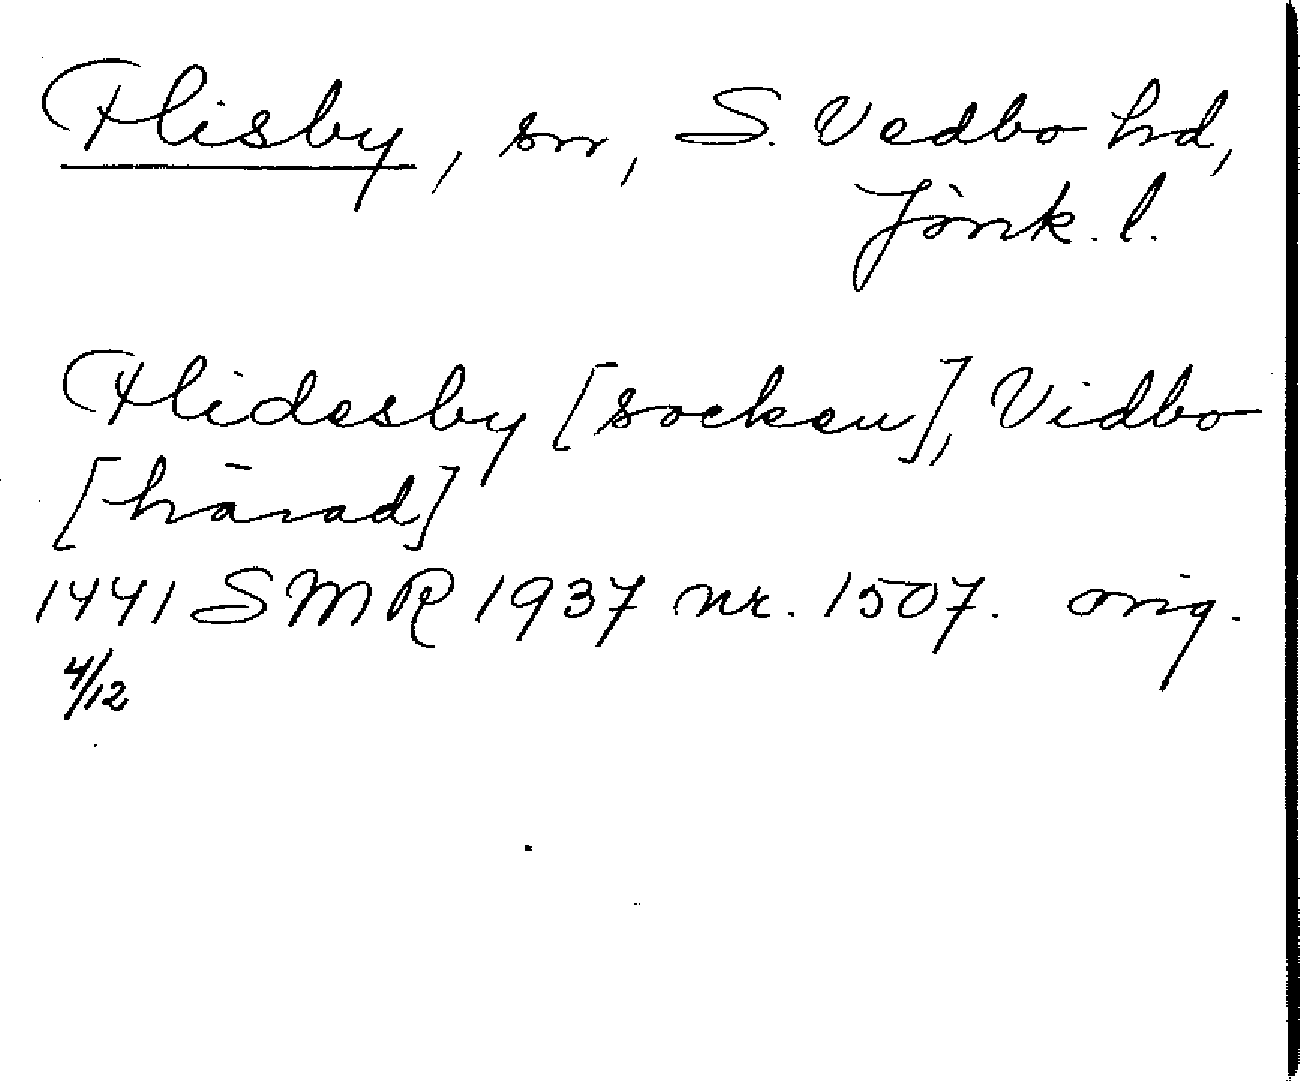 Flisby, sn, S. Vedbo hd,
Jönk. l.
Flidesby [socken], Vidbo
[härad]
1441 SMR 1937 nr. 1507. orig.
4/12